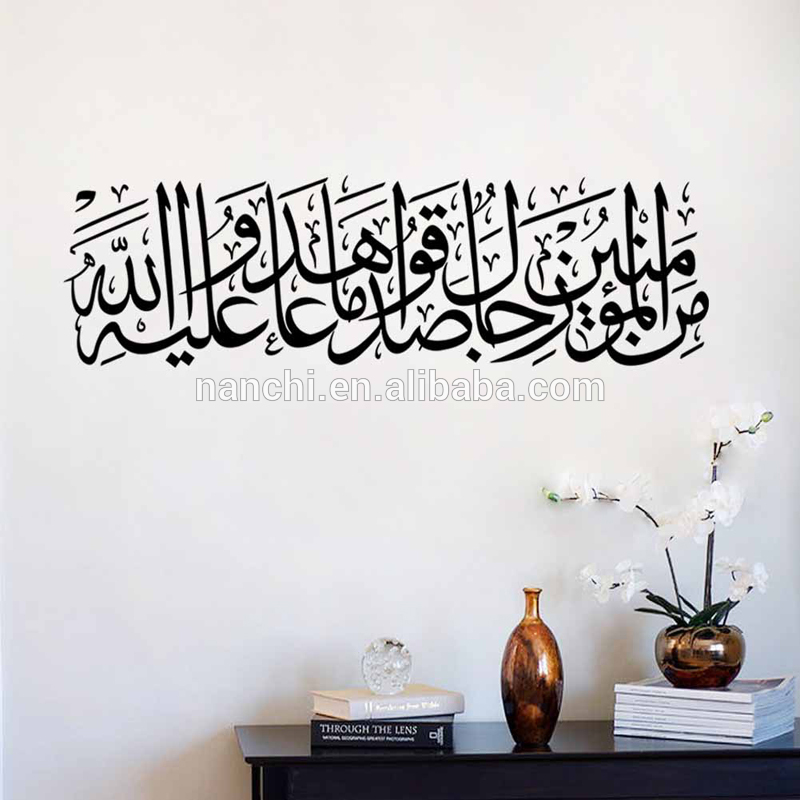 من المؤمنين رجال صدقوا ما عاهدوا الله عليه
nanchi.en.alibaba.com
THROUGH THE LENS
NATIONAL GEOGRAPHIC GREATEST PHOTOGRAPHS